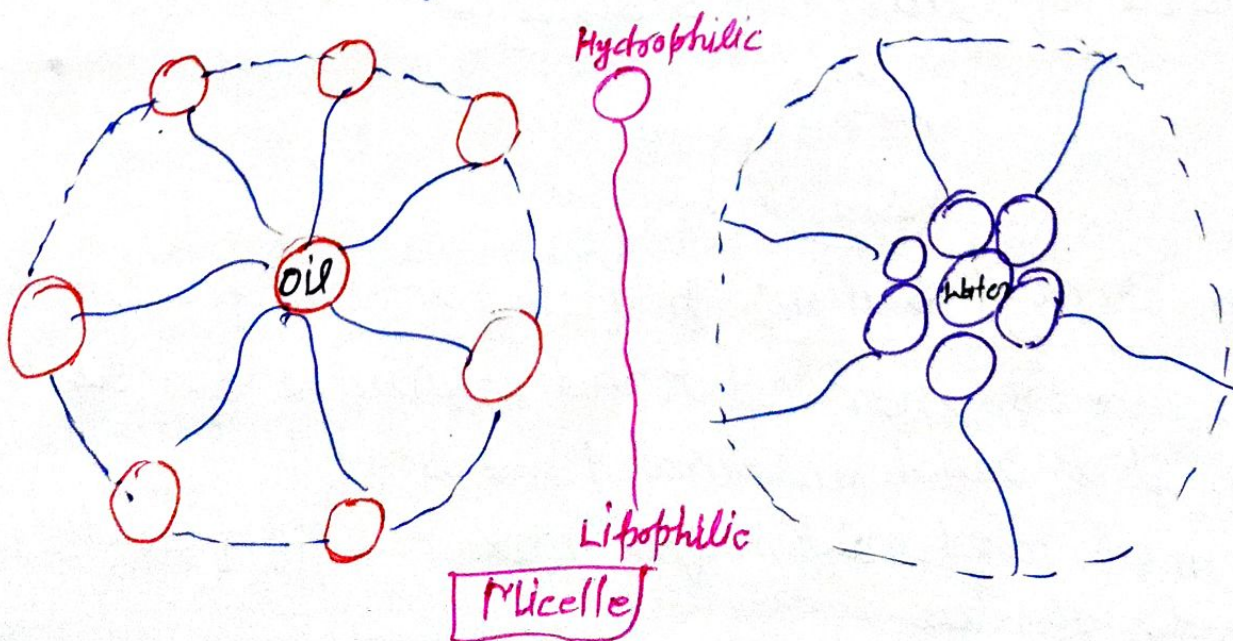 Hydrophilic
Oil
Water
Lipophilic
Micelle